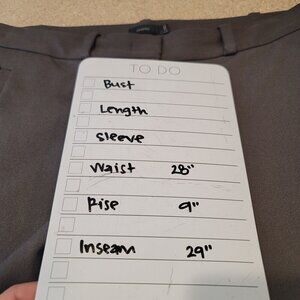 TO DO
Bust
Length
Sleeve
Waist 28"
Rise 9"
Inseam 29"